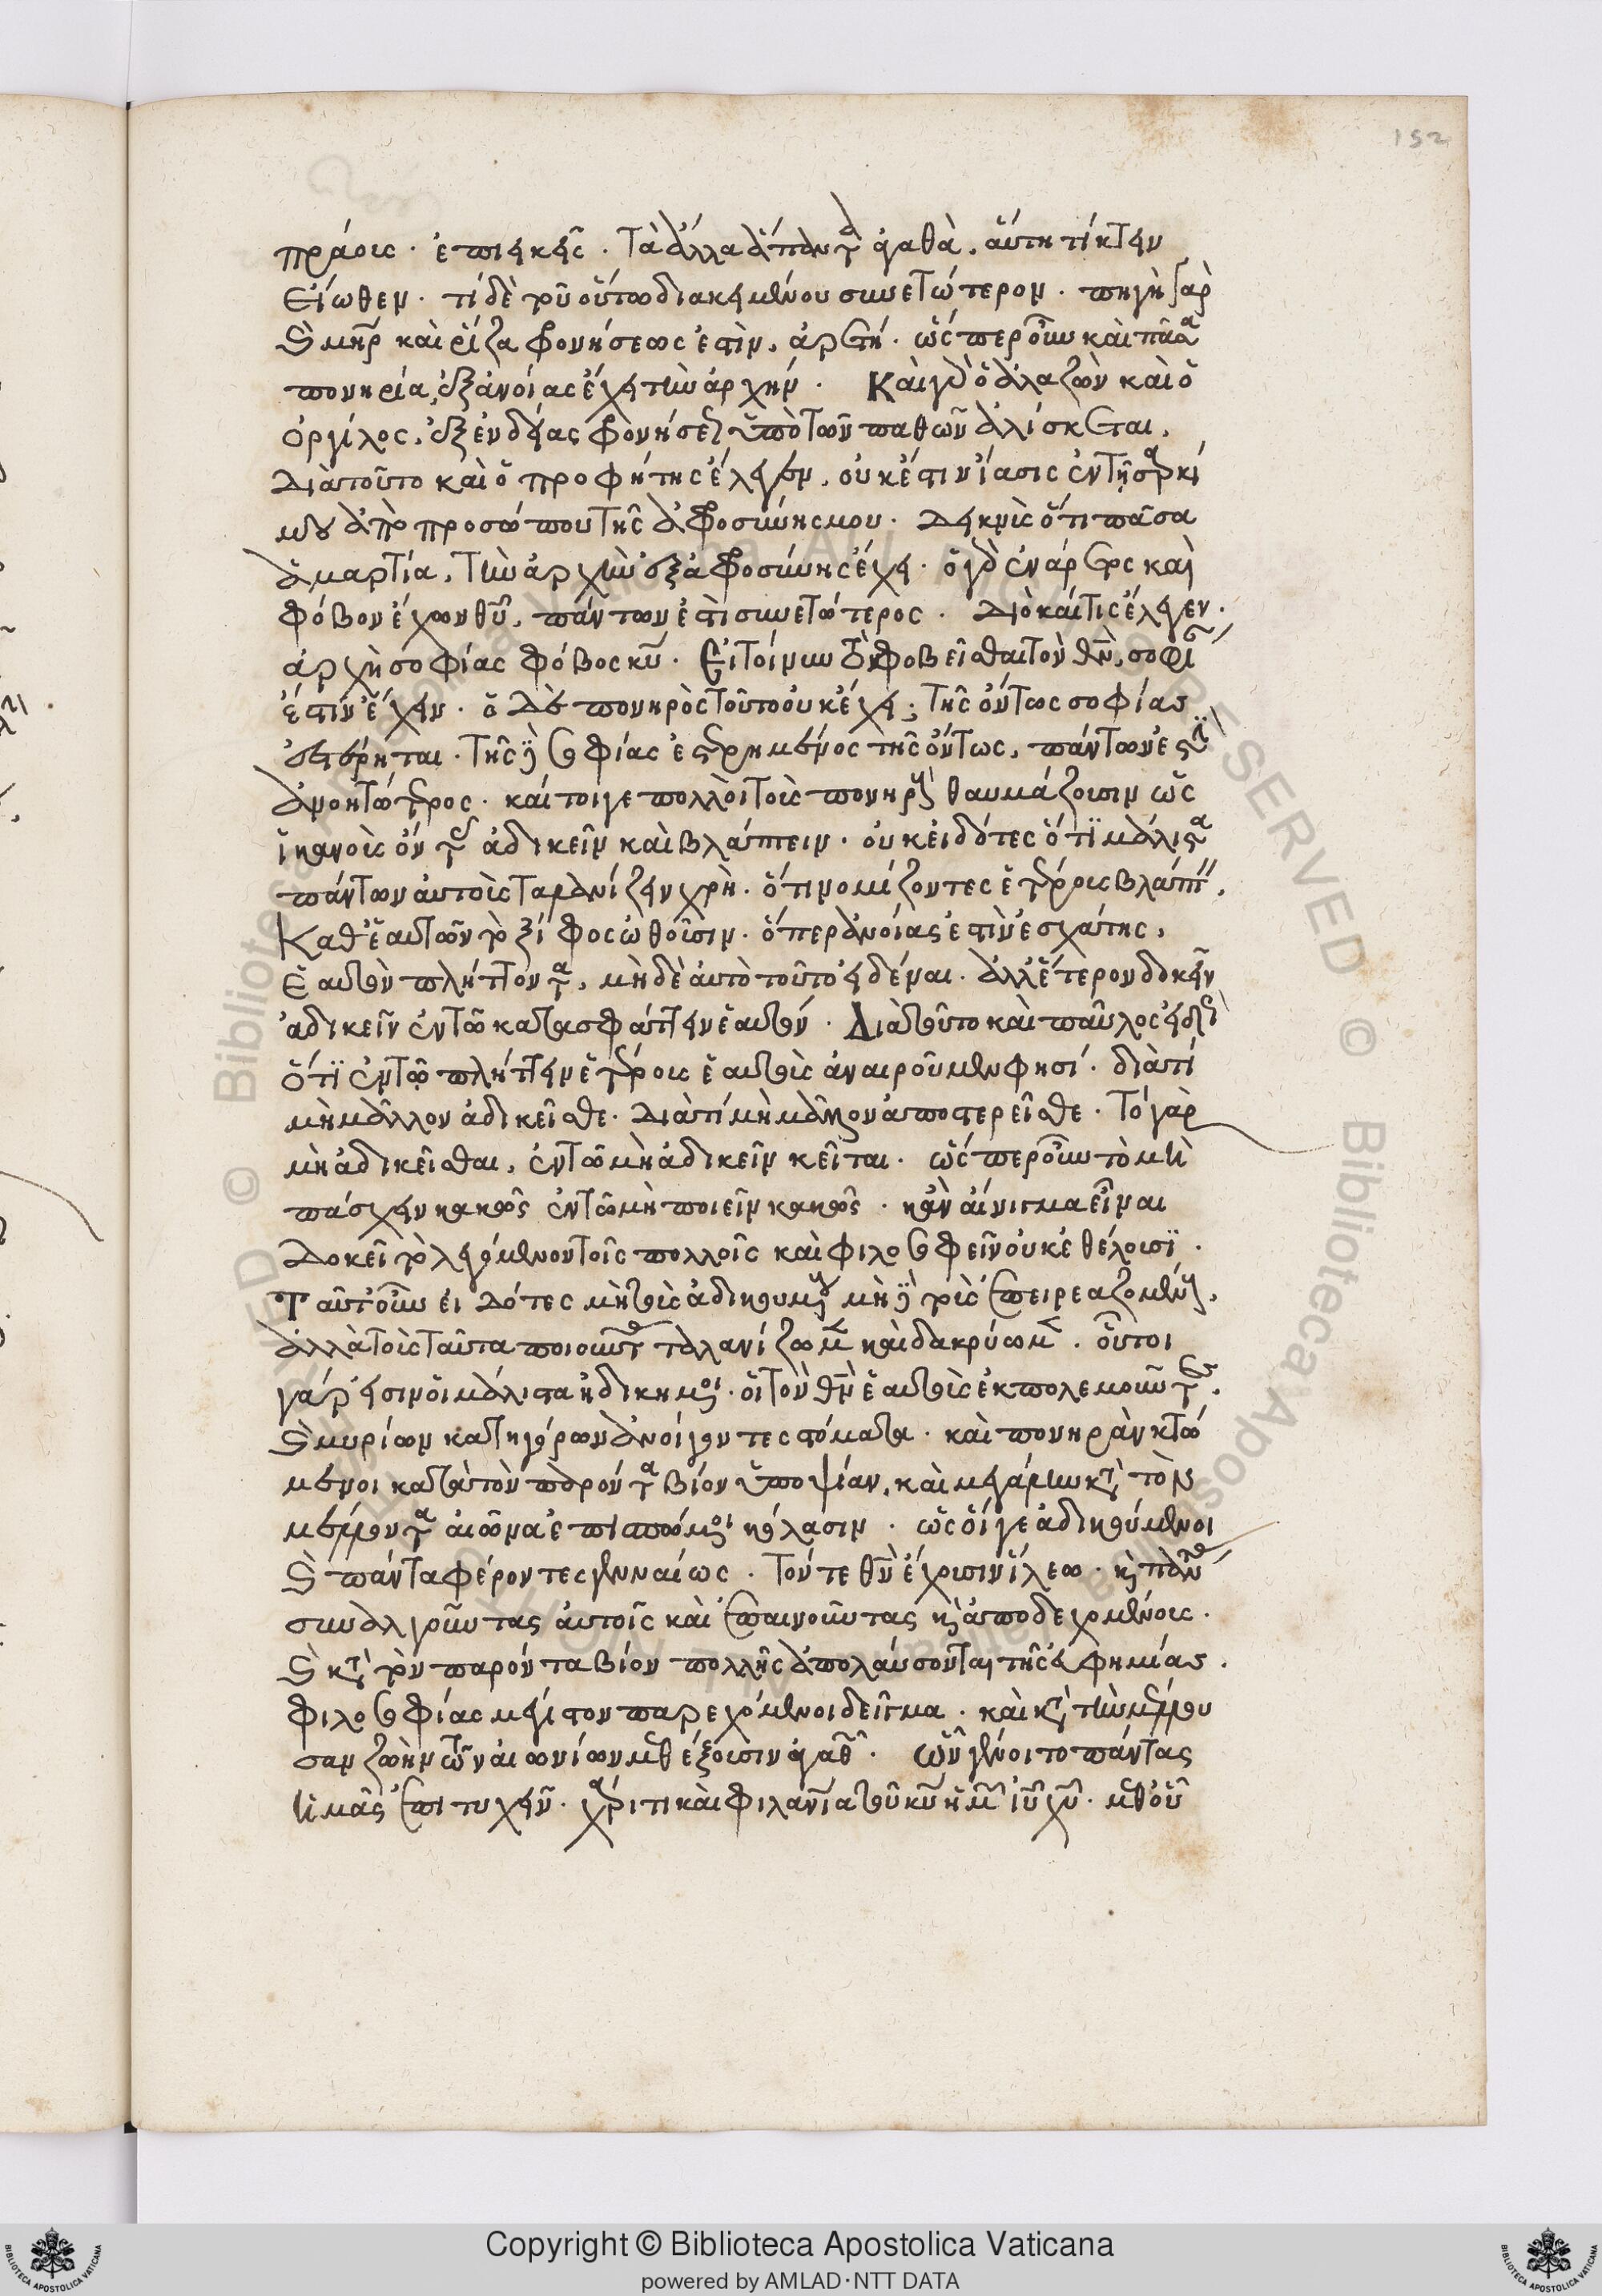 πράοις. ἐπιεικεῖς. τὰ ἄλλα ἅπαντα ἀγαθὰ, αὕτη τίκτειν
εἴωθεν. τί δὲ τοῦ οὕτω διακειμένου συνετώτερον. πηγὴ γὰρ
καὶ μῆρ καὶ ῥίζα φρονήσεώς ἐστὶν, ἀρετή. ὥσπερ οὖν καὶ πᾶσα
πονηρία, ἐξ ἀνοίας ἔχει τὴν ἀρχήν. Καὶ γὰρ ὁ ἀλαζὼν καὶ ὁ
ὀργίλος, ἐξ ἐνδείας φρονήσεως ὑπὸ τῶν παθῶν ἁλίσκεται.
Διατοῦτο καὶ ὁ προφήτης ἔλεγεν, οὐκ ἔστιν ἴασις ἐν τῇ σαρκί
μου ἀπὸ προσώπου τῆς ἀφροσύνης μου. Δεικνὺς ὅτι πᾶσα
ἁμαρτία, τὴν ἀρχὴν ἐξ ἀφροσύνης ἔχει. ὁ γὰρ ἐνάρετος καὶ
φόβον ἔχων θυ, πάντων ἐστὶ συνετώτερος. Διὸ καί τις ἔλεγεν.
ἀρχὴ σοφίας φόβος κυ. Εἰ τοίνυν τὸ φοβεῖσθαι τὸν θν, σοφίαν
ἐστὶν ἔχειν. ὁ δὲ πονηρὸς τοῦτο οὐκ ἔχει, τῆς ὄντως σοφίας
ἐστέρηται. τῆς δὲ σοφίας ἐστερημένος τῆς ὄντως, πάντων ἐστὶν
ἀνοητότερος. καί τοιγε πολλοὶ τοὺς πονηροὺς θαυμάζουσιν ὡς
ἱκανοὺς ὄντας ἀδικεῖν καὶ βλάπτειν. οὐκ εἰδότες ὅτι μάλιστα
πάντων αὐτοὺς ταλανίζειν χρὴ. ὅτι νομίζοντες ἑτέρους βλάπτειν,
καθ' ἑαυτῶν τὸ ξίφος ὠθοῦσιν. ὅπερ ἀνοίας ἐστὶν ἐσχάτης,
ἑαυτὸν πλήττοντα, μηδὲ αὐτὸ τοῦτο εἰδέναι. ἀλλ' ἕτερον δοκεῖν
ἀδικεῖν ἐν τῶ κατασφάττειν ἑαυτόν. Διατοῦτο καὶ παῦλος εἰδὼς
ὅτι ἐν τῷ πλήττειν ἑτέρους ἑαυτοὺς ἀναιροῦμεν φησί. διατί
μὴ μᾶλλον ἀδικεῖσθε. Διατί μὴ μᾶλλον ἀποστερεῖσθε. Τὸ γὰρ
μὴ ἀδικεῖσθαι, ἐν τῶ μὴ ἀδικεῖν κεῖται. ὥσπερ οὖν τὸ μὴ
πάσχειν κακῶς ἐν τῶ μὴ ποιεῖν κακῶς. κἂν αἴνιγμα εἶναι
δοκεῖ τὸ λεγόμενον τοῖς πολλοῖς καὶ φιλοσοφεῖν οὐκ ἐθέλουσι.
Ταῦτ' οὖν εἰδότες μὴ τοὺς ἀδικουμένους μὴ δὲ τοὺς ἐπηρεαζομένους,
ἀλλὰ τοὺς ταῦτα ποιοῦντας ταλανίζωμεν καὶ δακρύωμεν. οὗτοι
γάρ εἰσιν οἱ μάλιστα ἠδικημένοι. οἱ τὸν θν ἑαυτοῖς ἐκπολεμοῦντες.
καὶ μυρίων κατηγόρων ἀνοίγοντες στόματα. καὶ πονηρὰν κτώ
μενοι κατὰ τὸν παρόντα βίον ὑποψίαν, καὶ μεγάλην κατὰ τὸν
μέλλοντα αἰῶνα ἐπισπώμενοι κόλασιν. ὡς οἵγε ἀδικούμενοι
καὶ πάντα φέροντες γενναίως. τόν τε θν ἔχουσιν ἵλεω. καὶ πάντας
συναλγοῦντας αὐτοῖς καὶ ἐπαινοῦντας καὶ ἀποδεχομένους.
καὶ κατὰ τὸν παρόντα βίον πολλῆς ἀπολαύσονται τῆς εὐφημίας.
φιλοσοφίας μέγιστον παρεχόμενοι δεῖγμα. καὶ κατὰ τὴν μέλλου
σαν ζωὴν τῶν αἰωνίων μεθέξουσιν ἀγαθῶν. ὧν γένοιτο πάντας
ἡμᾶς ἐπιτυχεῖν. χάριτι καὶ φιλανία τοῦ κυ ἡμῶν ιυ χυ. μεθ' οὗ
152
Copyright © Biblioteca Apostolica Vaticana
powered by AMLAD·NTT DATA